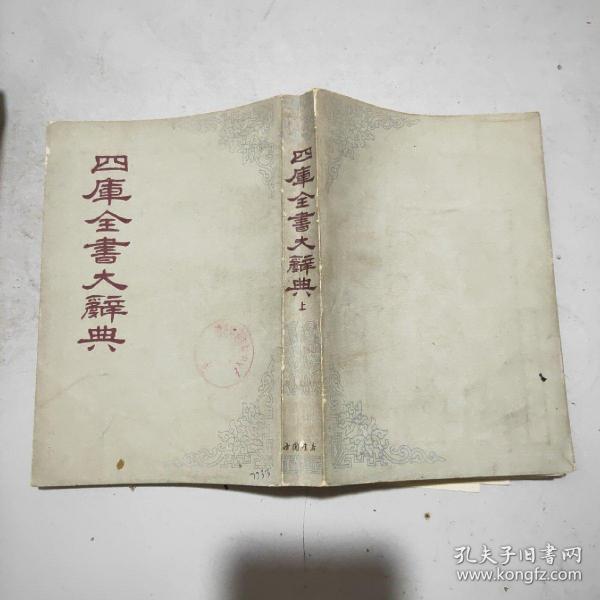 四庫全書大辭典
四庫全書大辭典
上
中国书店
孔夫子旧書网
www.kongfz.com